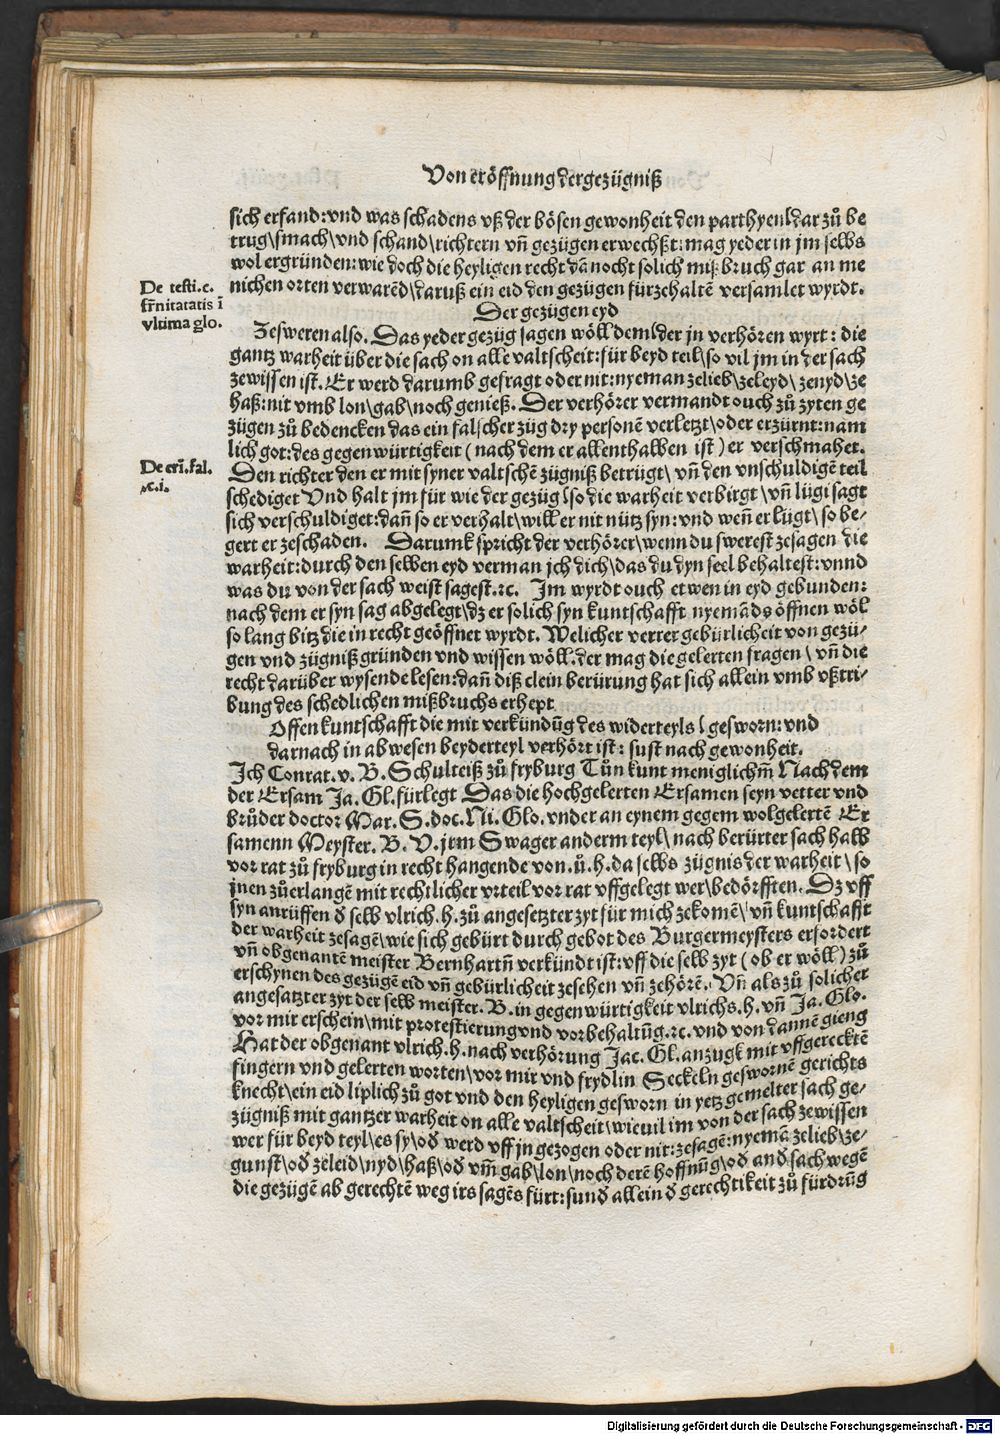 Von eröffnung der gezügniß
sich erfand: vnd was schadens vß der bösen gewonheit den parthyen\ dar zů be
trug\ smach\ vnd schand\ richtern vñ gezügen erwechßt: mag yeder in jm selbs
wol ergründen: wie doch die heyligen recht dã nocht solich mißbruch gar an me
nichen orten verwarẽd\ daruß ein eid den gezügen fürzehaltẽ versamlet wyrdt.
De testi. c.
fr̃nitatatis ĩ
vltima glo.
Der gezügen eyd
Ze sweren also. Das yeder gezüg sagen wöll dem\ der jn verhören wyrt: die
gantz warheit über die sach on alle valtscheit: für beyd teil\ so vil jm in der sach
zewissen ist. Er werd darumb gefragt oder nit: nyeman zelieb\ zeleyd\ zenyd\ ze
haß: nit vmb lon\ gab\ noch genieß. Der verhörer vermandt ouch zů zyten ge
zügen zů bedencken das ein falscher züg dry personẽ verletzt\ oder erzürnt: nam
lich got: des gegenwürtigkeit (nach dem er allenthalben ist) er verschmahet.
De cri̅. fal.
⁊c. i.
Den richter den er mit syner valtschẽ zügniß betrügt\ vñ den vnschuldigẽ teil
schediget Vnd halt jm für wie der gezüg\ so die warheit verbirgt\ vñ lügi sagt
sich verschuldiget: dañ so er verhalt\ will er nit nütz syn: vnd weñ er lügt\ so be-
gert er zeschaden. Darumb spricht der verhörer\ wenn du swerest zesagen die
warheit: durch den selben eyd verman jch dich\ das du dyn seel behaltest: vnnd
was du von der sach weist sagest. ⁊c. Jm wyrdt ouch etwen in eyd gebunden:
nach dem er syn sag abgelegt\ dz er solich syn kuntschafft nyemãds öffnen wöl
so lang bitz die in recht geöffnet wyrdt. Welicher verrer gebürlicheit von gezü-
gen vnd zügniß gründen vnd wissen wöll. der mag die gelerten fragen\ vñ die
recht darüber wysende lesen: dañ diß clein berürung hat sich allein vmb vßtri-
bung des schedlichen mißbruchs erhept
Offen kuntschafft die mit verkündũg des widerteyls\ gesworn: vnd
darnach in abwesen beyderteyl verhört ist: sust nach gewonheit.
Jch Conrat. v. B. Schulteiß zů fryburg Tůn kunt meniglichm̃ Nach dem
der Ersam Ja. Gl. fürlegt Das die hochgelerten Ersamen seyn vetter vnd
brůder doctor Mar. S. doc. Ni. Glo. vnder an eynem gegem wolgelertẽ Er
samenn Meyster. B. V. jrm Swager anderm teyl\ nach berürter sach halb
vor rat zů fryburg in recht hangende von. ů. h. da selbs zügnis der warheit\ so
jnen zůerlangẽ mit rechtlicher vrteil vor rat vffgelegt wer\ bedörfften. Dz vff
syn anrüffen ð selb vlrich. h. zů angesetzter zyt für mich zekomẽ\ vñ kuntschafft
der warheit zesagẽ\ wie sich gebürt durch gebot des Burgermeysters erfordert
vñ obgenantẽ meister Bernhartñ verkündt ist: vff die selb zyt (ob er wöll) zů
erschynen des gezügẽ eid vñ gebürlicheit zesehen vñ zehörẽ. Vñ als zů solicher
angesatzter zyt der selb meister. B. in gegenwürtigkeit vlrichs. h. vñ Ja. Glo.
vor mir erschein\ mit protestierung vnd vorbehaltũg. ⁊c. vnd von dannẽ gieng
Hat der obgenant vlrich. h. nach verhörung Jac. Gl. anzugk mit vffgerecktẽ
fingern vnd gelerten worten\ vor mir vnd frydlin Seckeln geswornẽ gerichts
knecht\ ein eid liplich zů got vnd den heyligen gesworn in yetz gemelter sach ge-
zügniß mit gantzer warheit on alle valtscheit\ wieuil im von der sach zewissen
wer für beyd teyl\ es sy\ oð werd vff jn gezogen oder nit: zesagẽ: nyemã zelieb\ ze-
gunst\ oð zeleid\ nyd\ haß\ oð vm̃ gab\ lon\ noch derẽ hoffnũg\ oð anð sach wegẽ
die gezügẽ ab gerechtẽ weg irs sagẽs fürt: sunð allein ð gerechtikeit zů fürdrũg
Digitalisierung gefördert durch die Deutsche Forschungsgemeinschaft - DFG